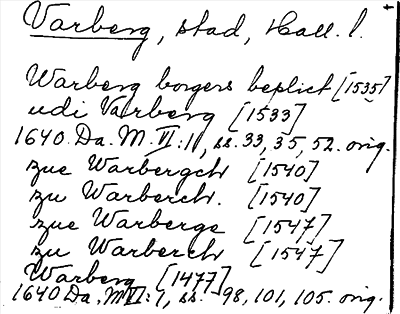 Varberg, stad, Hall. l.
Warberg borgers beplict [1535]
udi Varberg [1533]
1640. Da. M. VI:1, ss. 33, 35, 52. orig.
zue Warbergch [1540]
zu Warberch. [1540]
zue Warberge [1547]
zu Warberch [1547]
Warberg [1477]
1640 Da. M VI:1, ss. 98, 101, 105. orig.